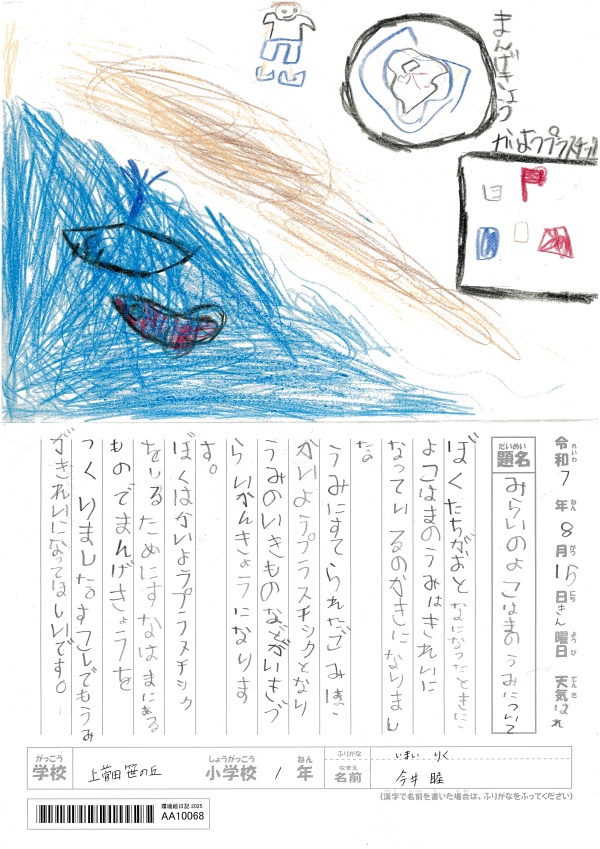 まんげきょう
かいようプラスチック
令和7年8月15日きん曜日 天気はれ
れいわ ねん がつ にち ようび てんき
だいめい
題名
みらいのよこはまのうみについて
ぼくたちがおとなになったときに
よこはまのうみはきれいに
なっているのかきになりまし
た。
うみにすてられたごみは、
かいようプラスチックとなり
うみのいきものなどがいきづ
らいかんきょうになりま
す。
ぼくはかいようプラスチック
をへらすためにすなはまにある
ものでまんげきょうを
つくりました。すこしでもうみ
がきれいになってほしいです。
がっこう
学校
上菅田笹の丘
しょうがっこう
小学校
1
ねん
年
ふりがな
いまい りく
なまえ
名前
今井 睦
(漢字で名前を書いた場合は、ふりがなをふってください)
環境絵日記 2025
AA10068